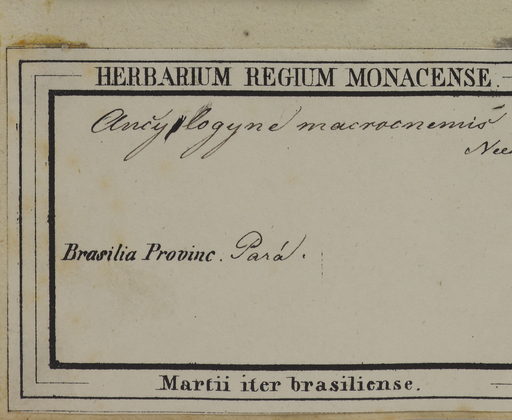 HERBARIUM REGIUM MONACENSE.
Ancylogyne macrocnemis
Nees
Brasilia Provinc. Pará.
Martii iter brasiliense.